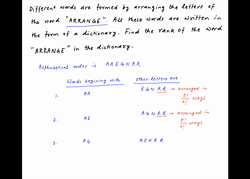 Different words are formed by arranging the letters of
the word "ARRANGE". All these words are written in
the form of a dictionary. Find the rank of the word
"ARRANGE" in the dictionary.
Alphabetical order is AAEGNRR
Words begining with Other letters are
1. AA EGNRR → arranged in 5!/2! ways
2. AE AGNRR → arranged in 5!/2! ways
3. AG AENRR